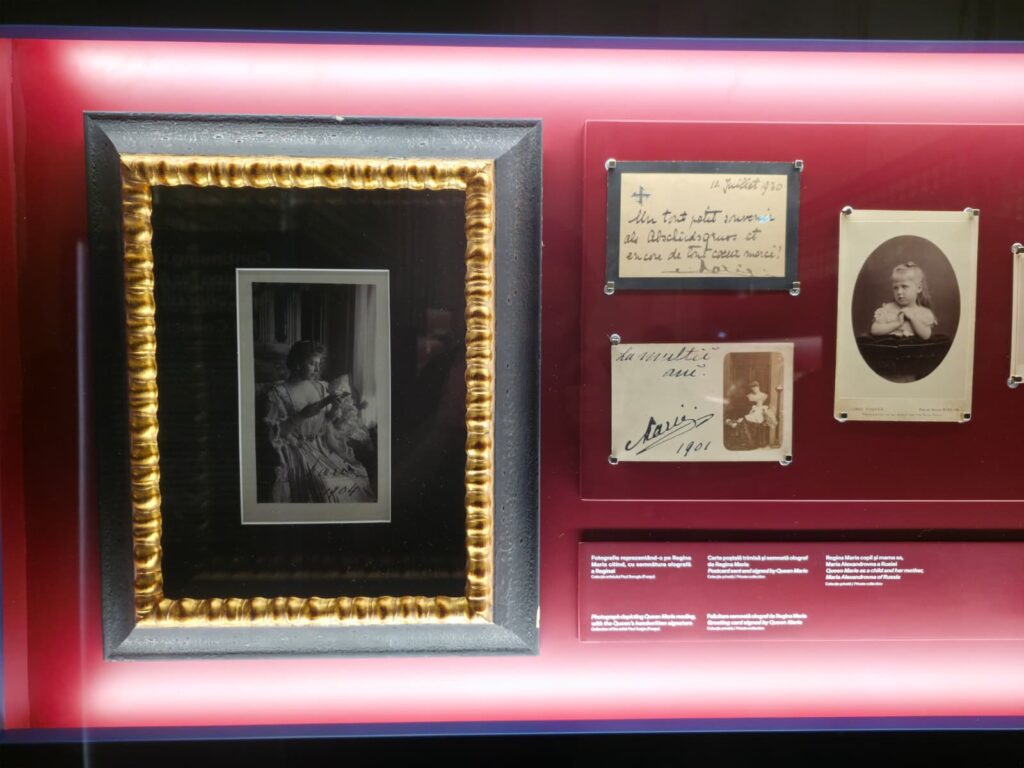 Marie
1904
14 Juillet 1930
Un tout petit souvenir
als Abschiedsgruss et
encore de tout coeur merci!
Marie
La multii
ani.
Marie
1901
Fotografie reprezentând-o pe Regina
Maria citind, cu semnătura olografă
a Reginei
Photograph depicting Queen Maria reading,
with the Queen's handwritten signature
Carte poștală trimisă și semnată olograf
de Regina Maria
Postcard sent and signed by Queen Marie
Colecție privată / Private collection
Felicitare semnată olograf de Regina Maria
Greeting card signed by Queen Marie
Colecție privată / Private collection
Regina Maria copil și mama sa,
Maria Alexandrovna a Rusiei
Queen Marie as a child and her mother,
Maria Alexandrovna of Russia
Colecție privată / Private collection